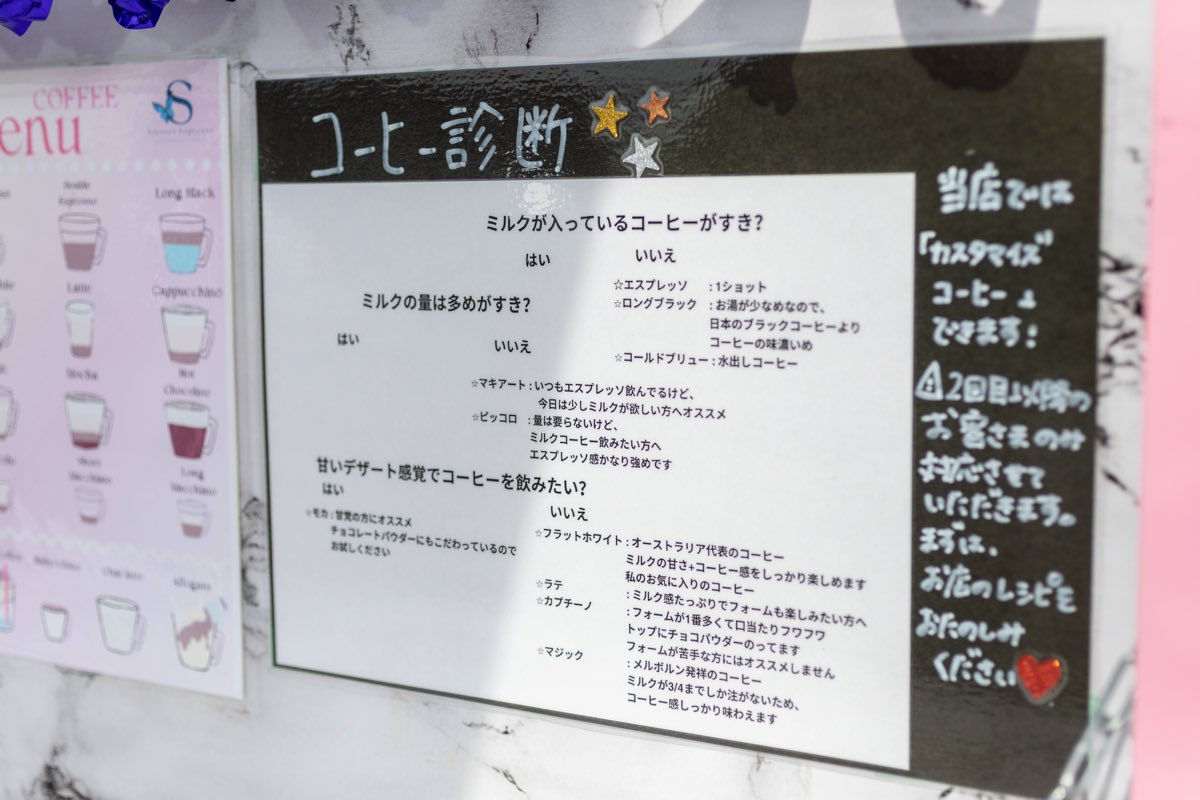 COFFEE
enu
S
Double
Espresso
Long Black
Latte
Cappuccino
Mocha
Hot
Chocolate
Short
Macchiato
Long
Macchiato
Affogato
コーヒー診断
ミルクが入っているコーヒーがすき?
はい
いいえ
☆エスプレッソ : 1ショット
☆ロングブラック : お湯が少なめなので、
日本のブラックコーヒーより
コーヒーの味濃いめ
☆コールドブリュー : 水出しコーヒー
ミルクの量は多めがすき?
はい
いいえ
☆マキアート : いつもエスプレッソ飲んでるけど、
今日は少しミルクが欲しい方へオススメ
☆ピッコロ : 量は要らないけど、
ミルクコーヒー飲みたい方へ
エスプレッソ感かなり強めです
甘いデザート感覚でコーヒーを飲みたい?
はい
いいえ
☆モカ : 甘党の方にオススメ
チョコレートパウダーにもこだわっているので
お試しください
☆フラットホワイト : オーストラリア代表のコーヒー
ミルクの甘さ+コーヒー感をしっかり楽しめます
私のお気に入りのコーヒー
☆ラテ : ミルク感たっぷりでフォームも楽しみたい方へ
☆カプチーノ : フォームが1番多くて口当たりフワフワ
トップにチョコパウダーのってます
フォームが苦手な方にはオススメしません
☆マジック : メルボルン発祥のコーヒー
ミルクが3/4までしか注がないため、
コーヒー感しっかり味わえます
当店では
「カスタマイズ」
コーヒーも
できます!
⚠2回目以降の
お客さまのみ
対応させて
いただきます。
まずは、
お店のレシピを
おたのしみ
ください